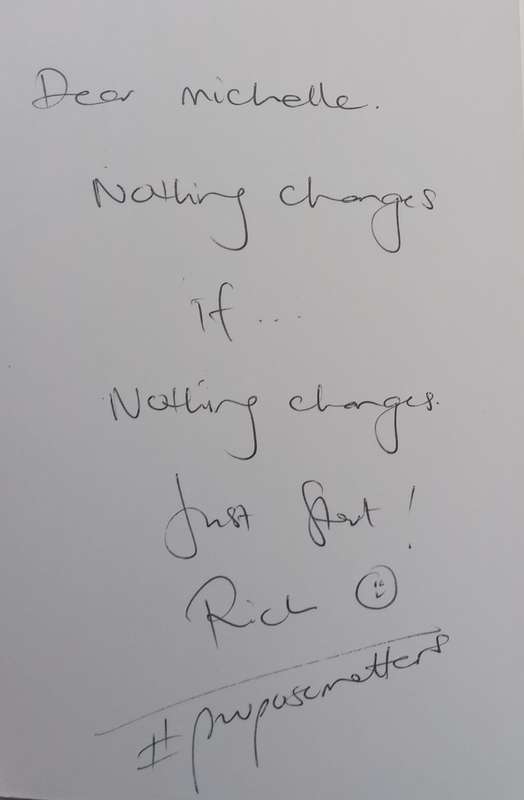 Dear michelle.
Nothing changes
If...
Nothing changes.
Just Start!
Rich
#purposematters